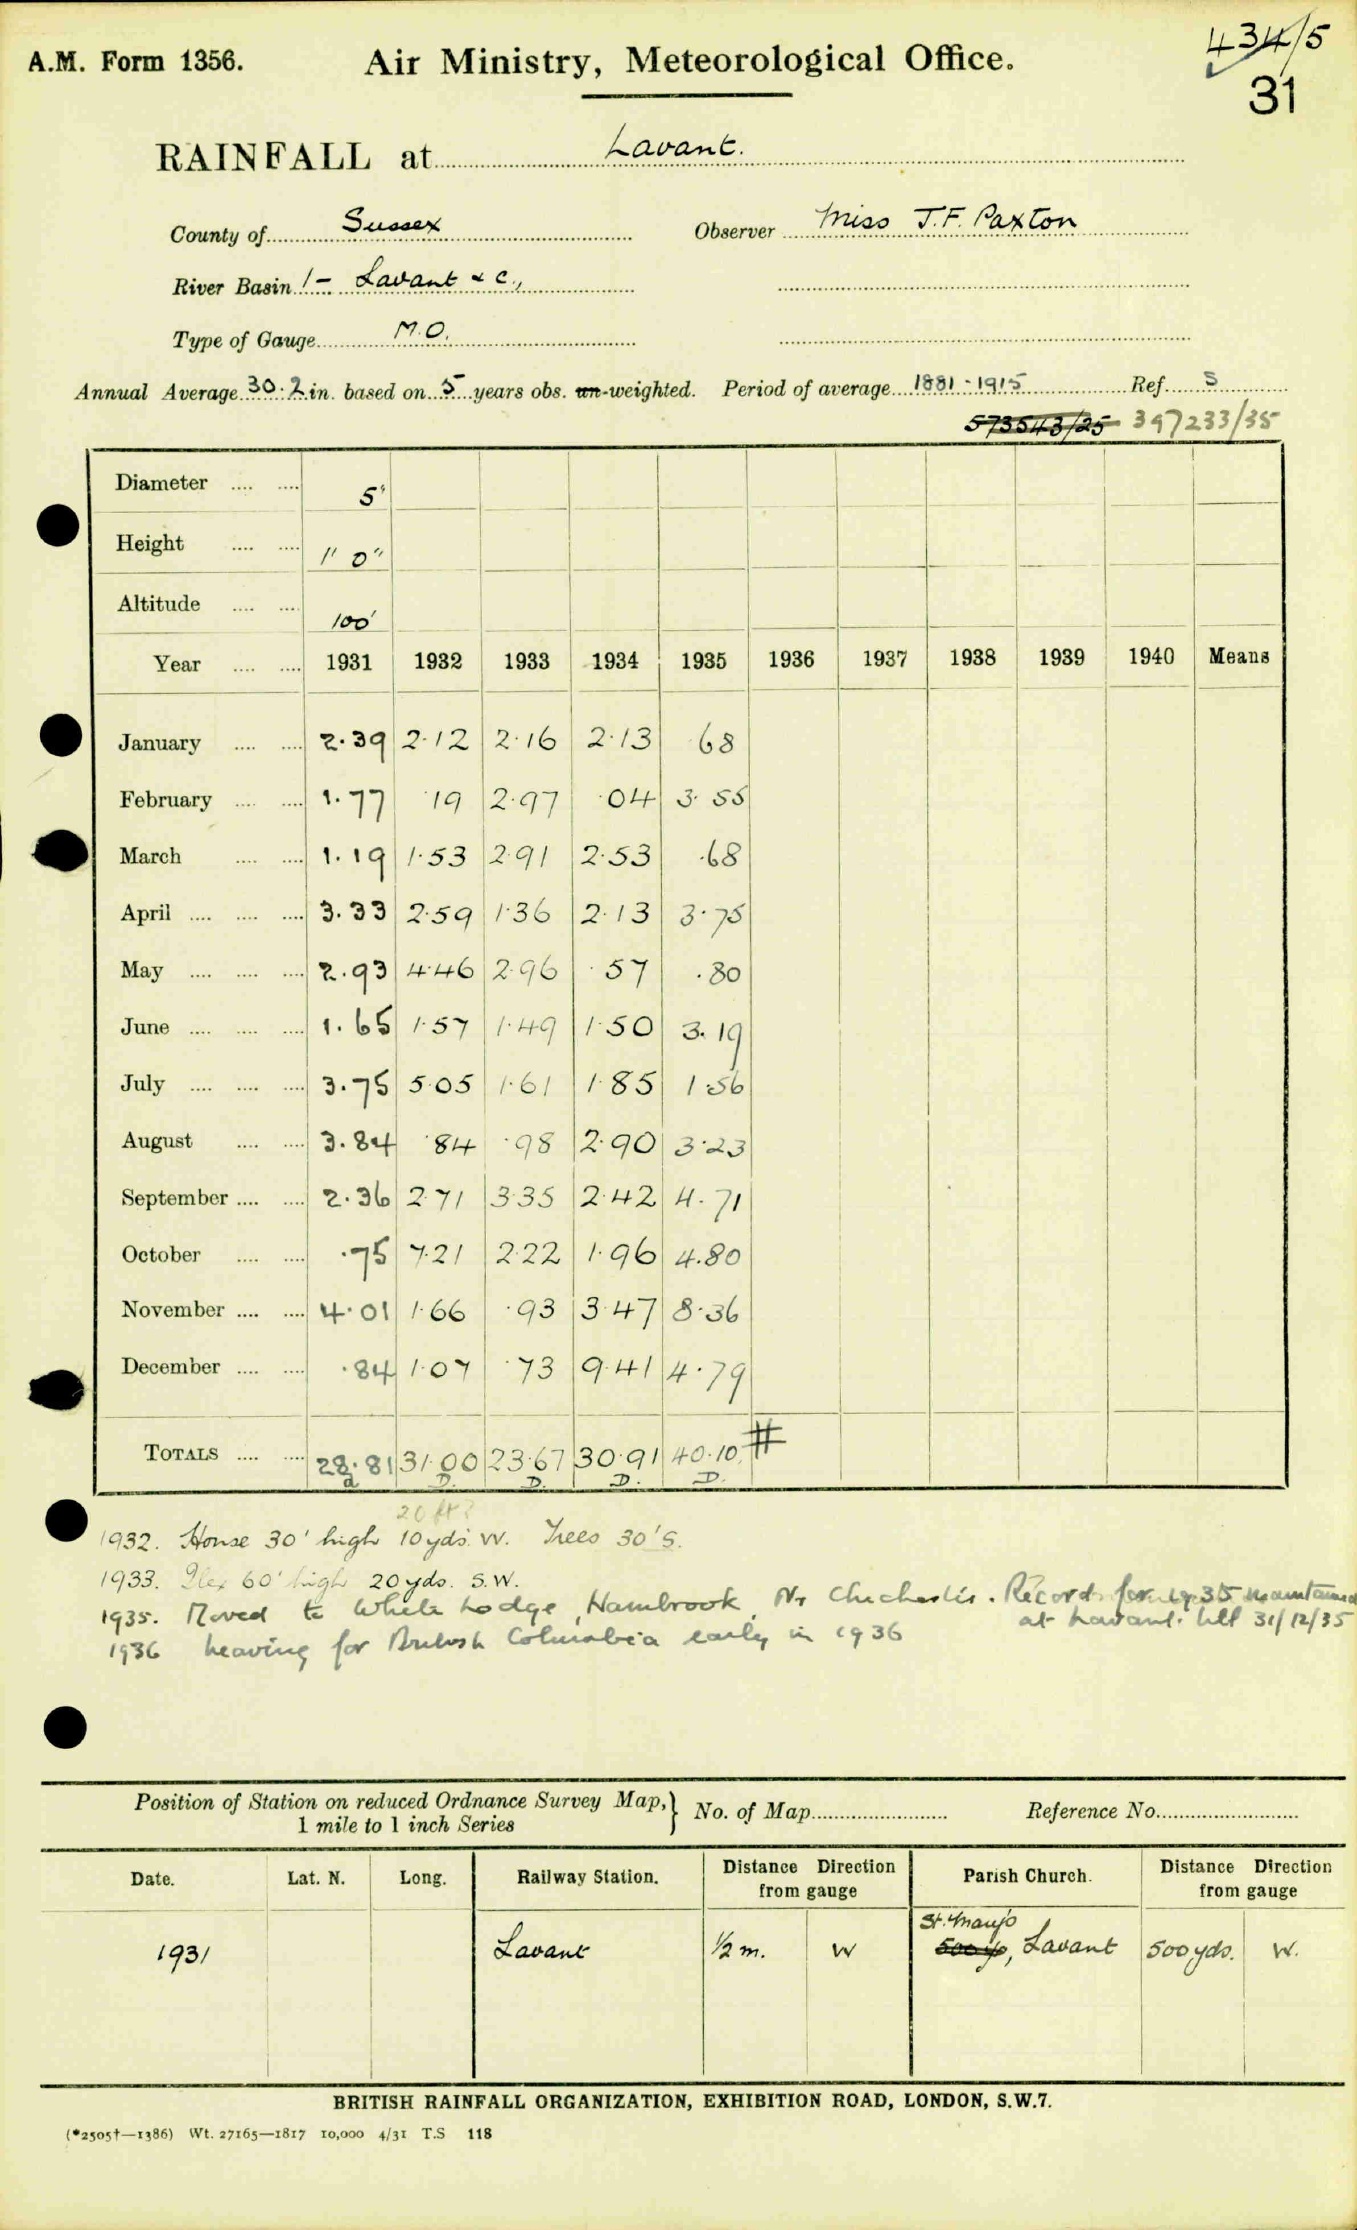 A.M. Form 1356.
Air Ministry, Meteorological Office.
434/5
31
RAINFALL at Lavant.
County of Sussex
Observer Miss J.F. Paxton
River Basin 1- Lavant & c.,
Type of Gauge M.O.
Annual Average 30.2 in. based on 5 years obs. un-weighted. Period of average 1881-1915 Ref. S
573543/25 397233/35
Diameter .... .... 5"
Height .... .... 1" 0"
Altitude .... .... 100'
Year .... .... 1931 1932 1933 1934 1935 1936 1937 1938 1939 1940 Means
January .... .... 2.39 2.12 2.16 2.13 68
February .... .... 1.77 .19 2.97 .04 3.55
March .... .... 1.19 1.53 2.91 2.53 .68
April .... .... .... 3.33 2.59 1.36 2.13 3.75
May .... .... .... 2.93 4.46 2.96 .57 .80
June .... .... .... 1.65 1.57 1.49 1.50 3.19
July .... .... .... 3.75 5.05 1.61 1.85 1.56
August .... .... 3.84 .84 .98 2.90 3.23
September .... .... 2.36 2.71 3.35 2.42 4.71
October .... .... .75 7.21 2.22 1.96 4.80
November .... .... 4.01 1.66 .93 3.47 8.36
December .... .... .84 1.07 .73 9.41 4.79
TOTALS .... .... 28.81 31.00 23.67 30.91 40.10 #
a D. D. D. D.
20 ft?
1932. House 30' high 10yds. W. Trees 30' S.
1933. Ilex 60' high 20yds. S.W.
1935. Moved to White Lodge, Hambrook, Nr Chichester. Record for 1935 maintained
at Lavant. till 31/12/35
1936 Leaving for British Columbia early in 1936
Position of Station on reduced Ordnance Survey Map, 1 mile to 1 inch Series } No. of Map Reference No.
Date. Lat. N. Long. Railway Station. Distance Direction from gauge Parish Church. Distance Direction from gauge
St. Mary's
1931 Lavant ½ m. W 500 yds, Lavant 500 yds. W.
BRITISH RAINFALL ORGANIZATION, EXHIBITION ROAD, LONDON, S.W.7.
(*2505†—1386) Wt. 27165—1817 10,000 4/31 T.S 118